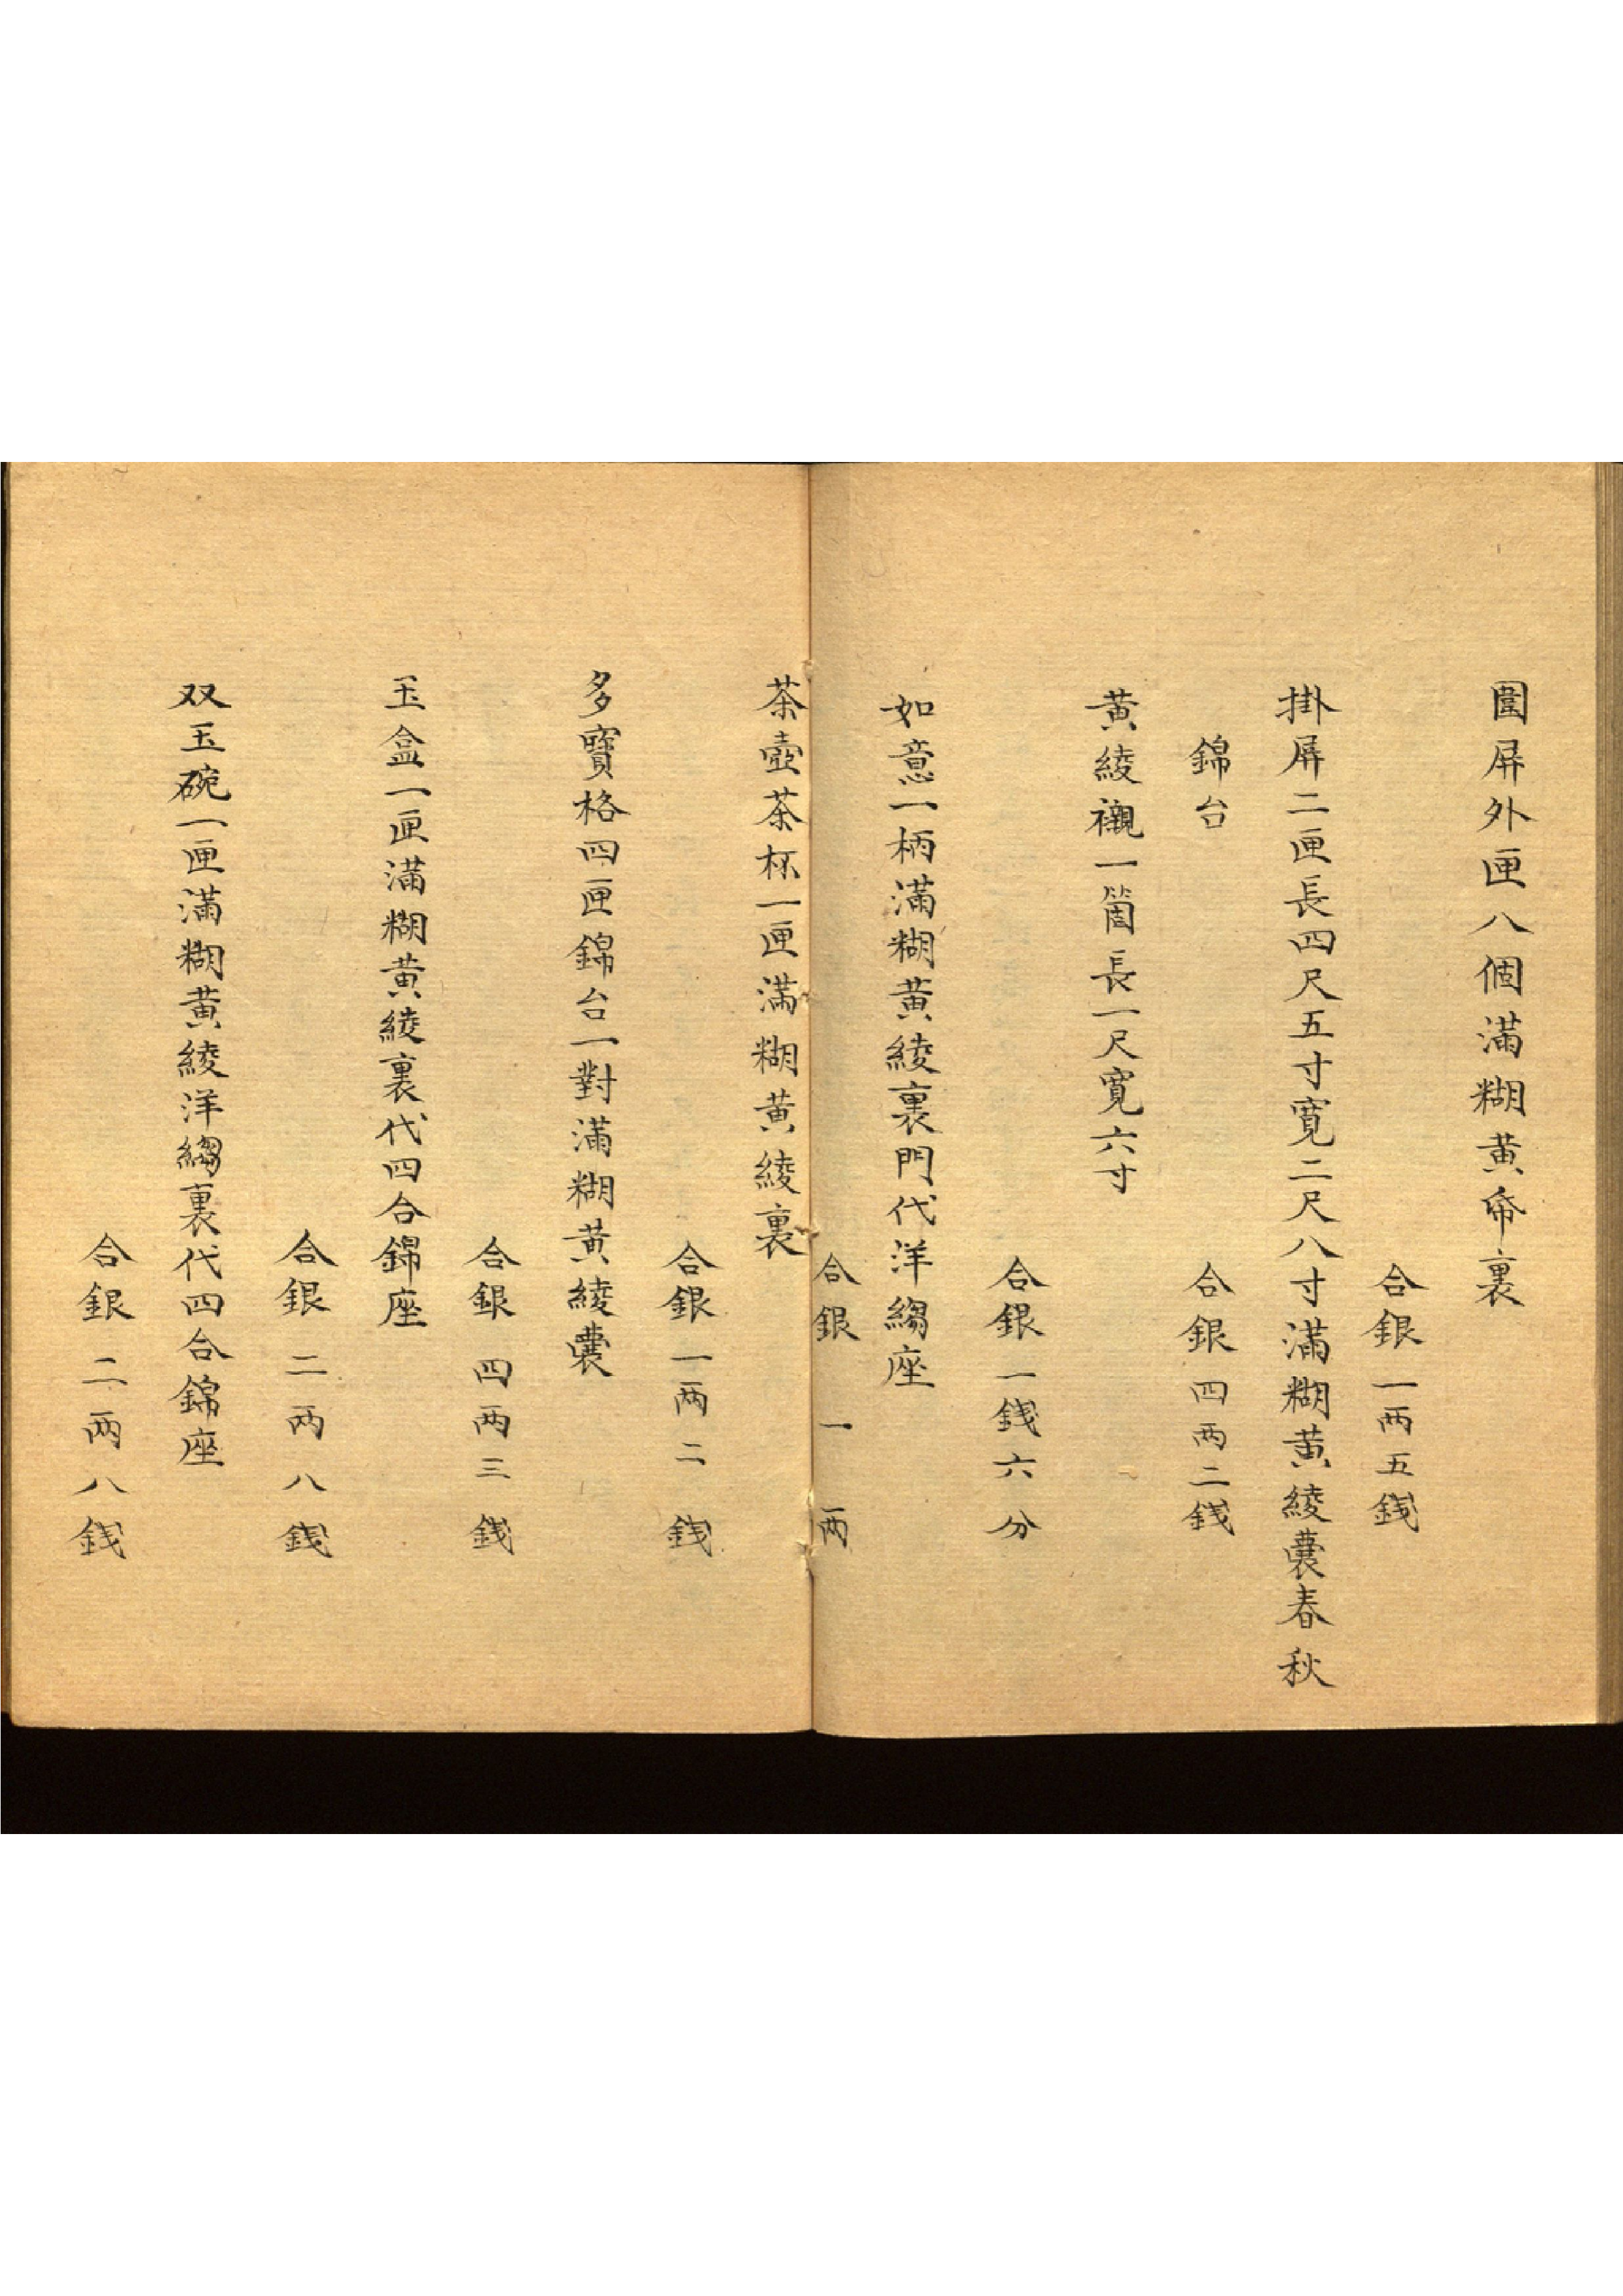 圍屏外匣八個滿糊黃帋裏
合銀一两五錢
掛屏二匣長四尺五寸寬二尺八寸滿糊黃綾裏春秋
錦台
合銀四两二錢
黃綾襯一箇長一尺寬六寸
合銀一錢六分
如意一柄滿糊黃綾裏門代洋縐座
合銀一两
茶壺茶杯一匣滿糊黃綾裏
合銀一两二錢
多寶格四匣錦台一對滿糊黃綾裏
合銀四两三錢
玉盒一匣滿糊黃綾裏代四合錦座
合銀二两八錢
双玉碗一匣滿糊黃綾洋縐裏代四合錦座
合銀二两八錢